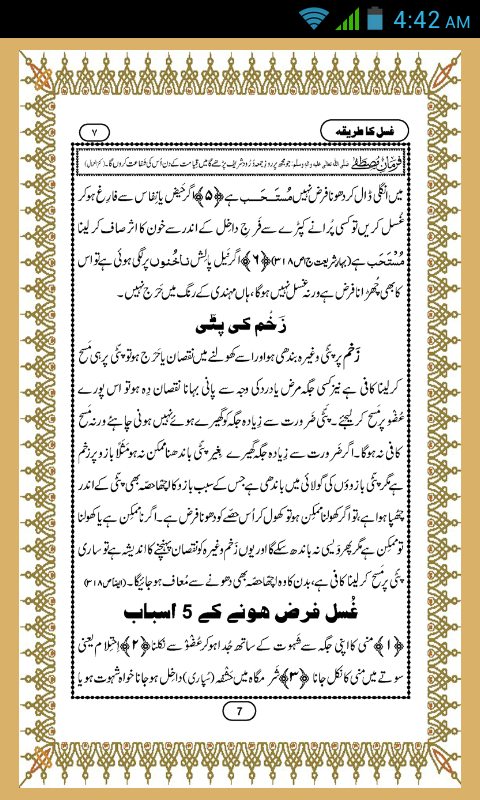 4:42 AM
غسل کا طریقہ
۷
فرمانِ مصطفےٰ صلی اللہ تعالیٰ علیہ والہ وسلم: جو مجھ پر روزِ جمعہ دُرُود شریف پڑھے گا میں قیامت کے دن اُس کی شفاعت کروں گا۔ (کنز العمال)
میں انگلی ڈال کر دھونا فرض نہیں مُستَحَب ہے ﴿۵﴾ اگر حَیض یا نِفاس سے فارِغ ہو کر
غُسل کریں تو کسی پُرانے کپڑے سے فَرجِ داخِل کے اندر سے خون کا اثر صاف کر لینا
مُسْتَحَب ہے (بہارِ شریعت ج۱ ص۳۱۸) ﴿۶﴾ اگر نَیل پالِش ناخُنوں پر لگی ہوئی ہے تو اس
کا بھی چُھڑانا فرض ہے ورنہ غسل نہیں ہوگا، ہاں مہندی کے رنگ میں حَرَج نہیں۔
زَخْم کی پٹّی
زَخْم پر پٹّی وغیرہ بندھی ہو اور اسے کھولنے میں نقصان یا حَرَج ہو تو پٹّی پر ہی مَسح
کر لینا کافی ہے نیز کسی جگہ مرض یا درد کی وجہ سے پانی بہانا نقصان دِہ ہو تو اس پورے
عُضْو پر مَسح کر لیجئے۔ پٹّی ضَرورت سے زِیادہ جگہ کو گھیرے ہوئے نہیں ہونی چاہئے ورنہ مَسح
کافی نہ ہوگا۔ اگر ضَرورت سے زِیادہ جگہ گھیرے بِغیر پٹّی باندھنا ممکن نہ ہو مَثَلًا بازو پر زخم
ہے مگر پٹّی بازوؤں کی گولائی میں باندھی ہے جس کے سبب بازو کا اچھّا حصّہ بھی پٹّی کے اندر
چُھپا ہوا ہے، تو اگر کھولنا ممکِن ہو تو کھول کر اُس حصّے کو دھونا فرض ہے۔ اگر نا ممکِن ہے یا کھولنا
تو ممکِن ہے مگر پھر وَیسی نہ باندھ سکے گا اور یوں زَخْم وغیرہ کو نقصان پہنچنے کا اندیشہ ہے تو ساری
پٹّی پر مَسح کر لینا کافی ہے، بدن کا وہ اچھّا حصّہ بھی دھونے سے مُعاف ہو جائیگا۔ (ایضًا ص۳۱۸)
غُسل فرض ہونے کے 5 اسباب
﴿۱﴾ منی کا اپنی جگہ سے شَہوت کے ساتھ جُدا ہو کر عُضْو سے نکلنا ﴿۲﴾ اِحتِلام یعنی
سوتے میں منی کا نکل جانا ﴿۳﴾ شَرمگاہ میں حَشْفہ (سُپاری) داخِل ہو جانا خواہ شہوت ہو یا
7